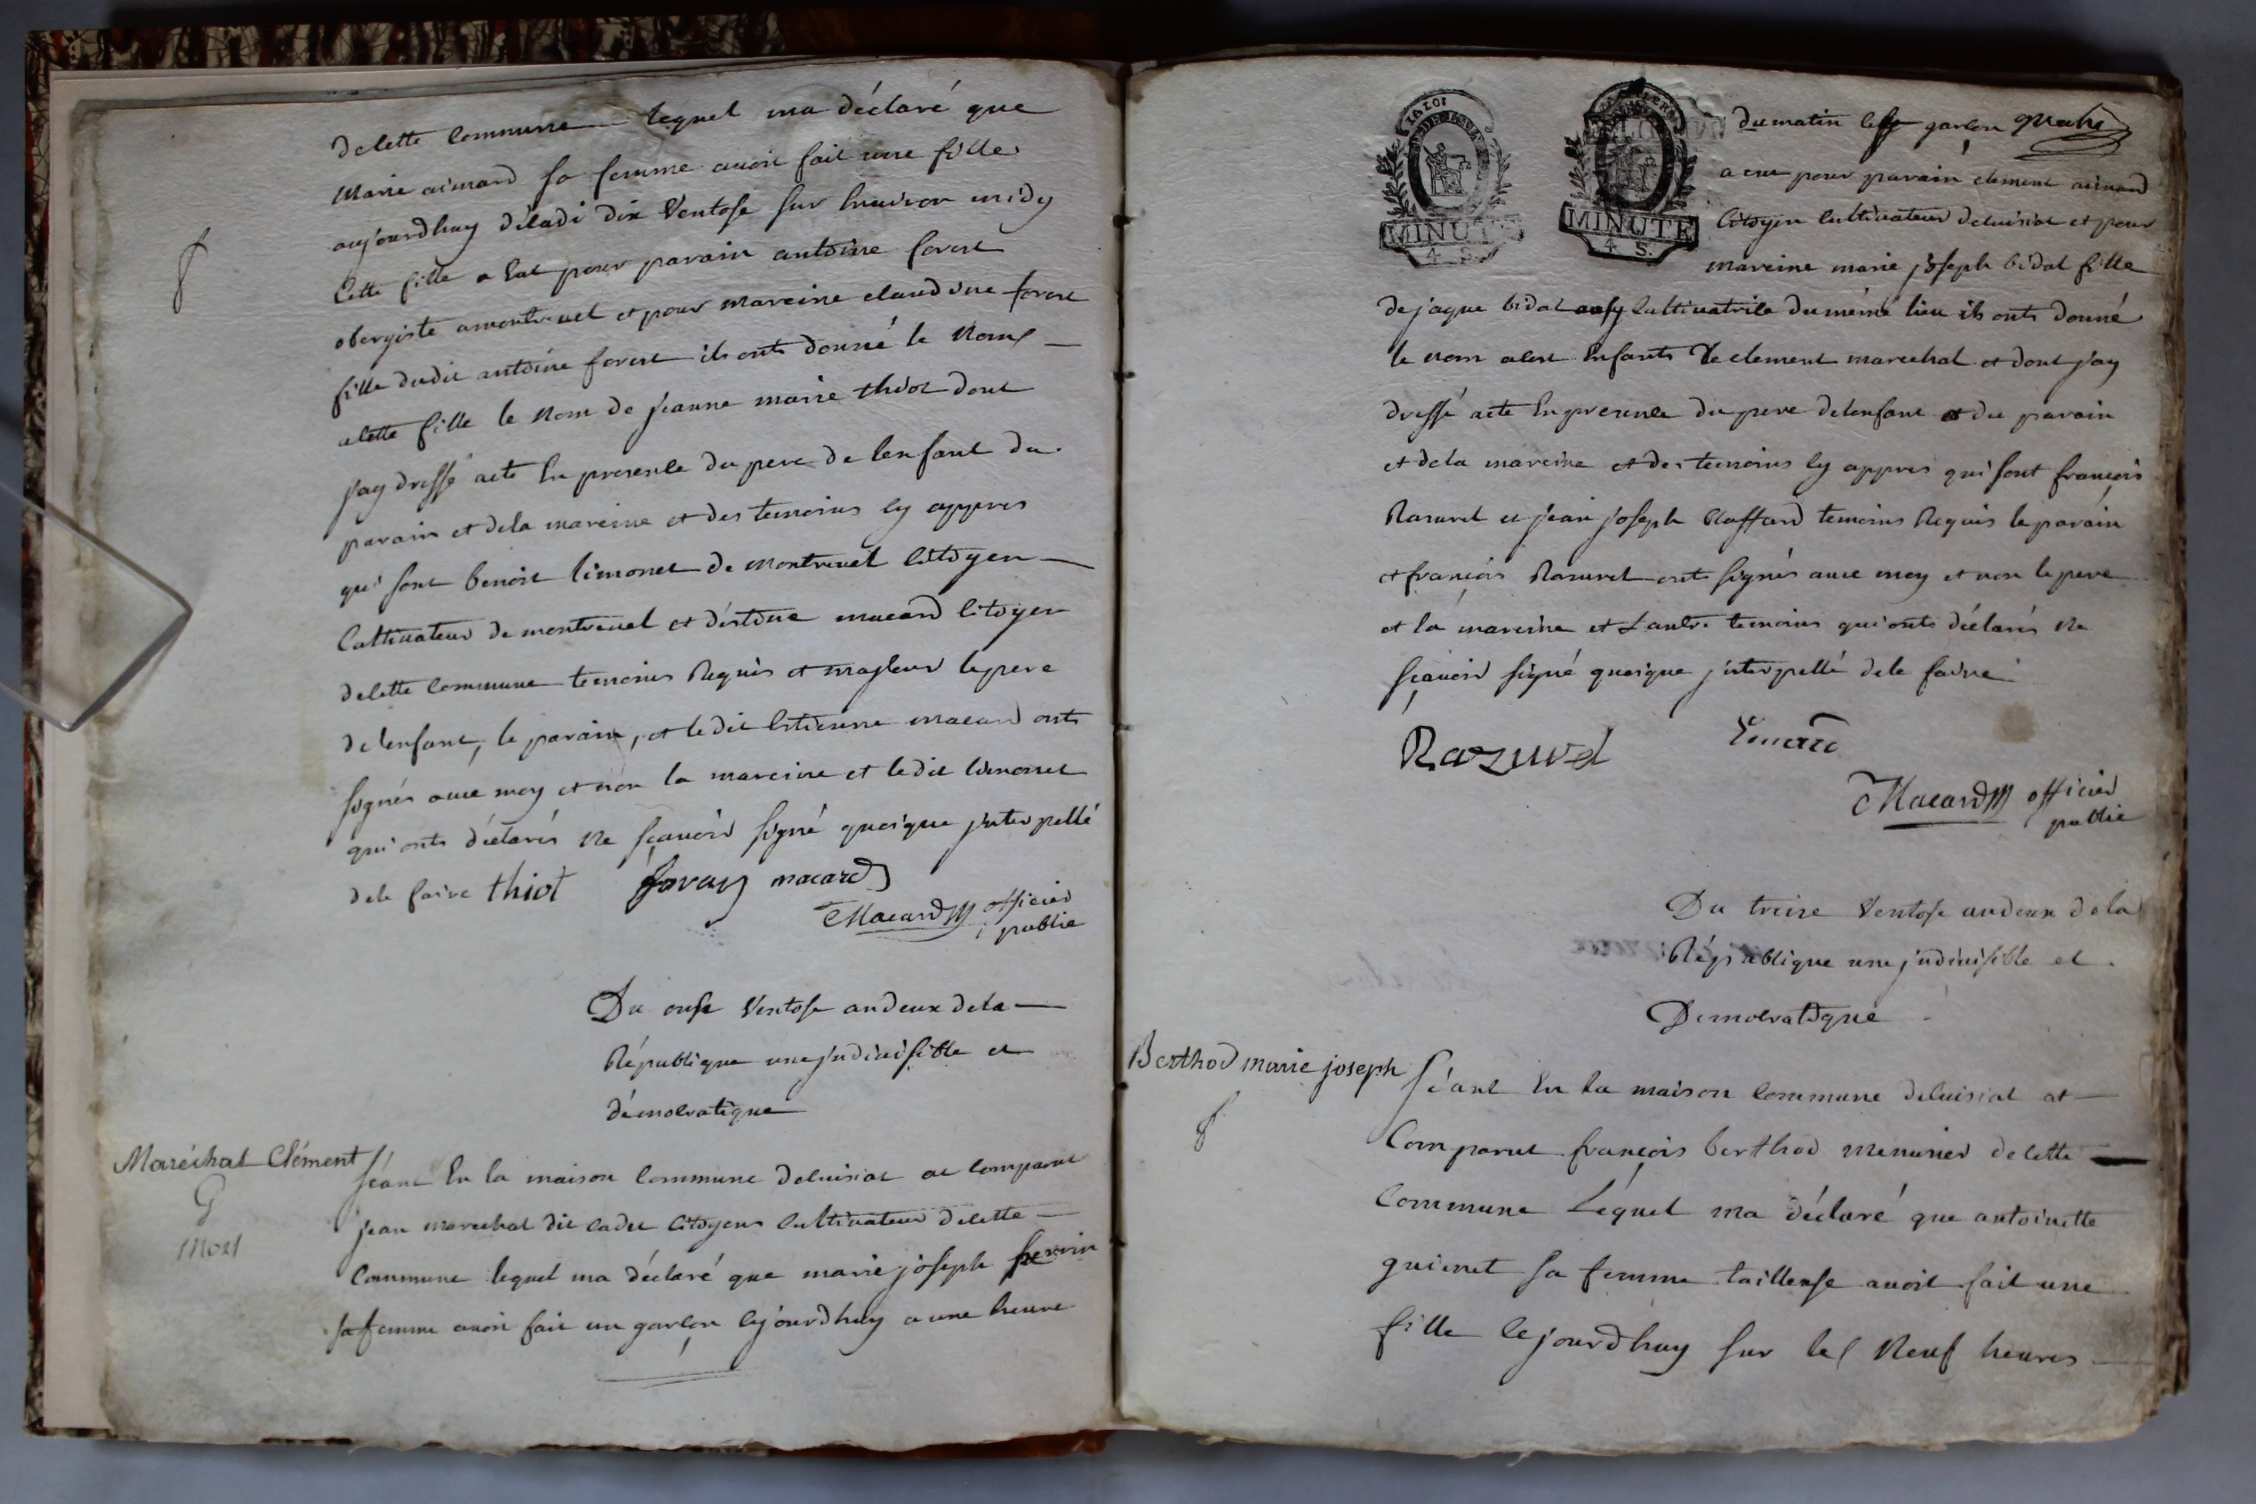 de cette commune lequel ma déclaré que
Marie aimard sa femme avoit fait une fille
aujourdhuy décadi dix Ventose sur lenviron midy
cette fille a eut pour parain antoine forest
obergiste a montrevel et pour mareine claudine forest
fille dudit antoine forest ils onts donné le Nom
a cette fille le nom de jeanne marie thiot dont
jay dressé acte En presence du pere de lenfant du
parain et dela mareine et des temoins cy appres
qui sont benoit limonet de Montrevel citoyen
Cultivateur de montrevel et destiene macard citoyen
de cette commune temoins Requis et majeur le pere
de lenfant, le parain, et le dit Estienne macard onts
signés avec moy et non la mareine et ledit limonet
qui onts déclarés ne sçavoir signé quoique jnterpellé
dele faire thiot foray macard
Macard officier
public
Du onse Ventose an deux dela
République une jndivisible et
démocratique
Maréchal Clément
G
Mort
séant En la maison commune de cuisiat at comparut
jean marechal dit cadet citoyens cultivateur de cette
Commune lequel ma déclaré que marie joseph
sa femme avoit fait un garçon cejourdhuy a une heure
MINUTE
4 S.
MINUTE
4 S.
du matin garçon
a eut pour parain clement aimard
citoyen cultivateur de cuisiat et pour
mareine marie joseph bidat fille
de jaque bidat cultivatrice du même lieu ils onts donné
le nom a cest Enfants de clement marechal et dont jay
dressé acte En presence du pere de lenfant et du parain
et dela mareine et des temoins cy appres qui sont françois
Razurel et jean joseph Raffard temoins Requis le parain
et françois Razurel onts signés avec moy et non le pere
et la mareine et Lautre temoins qui onts déclarés ne
sçavoir signé quoique jnterpellé dele faire
Razurel
Macard officier
public
Du treize Ventose an deux dela
République une jndivisible et
Démocratique
Berthod marie joseph
séant En la maison commune de cuisiat at
Comparut françois berthod Menunier de cette
commune Léquel ma déclaré que antoinette
guienet sa femme tailleuse avoit fait une
fille cejourdhuy sur les Neuf heures